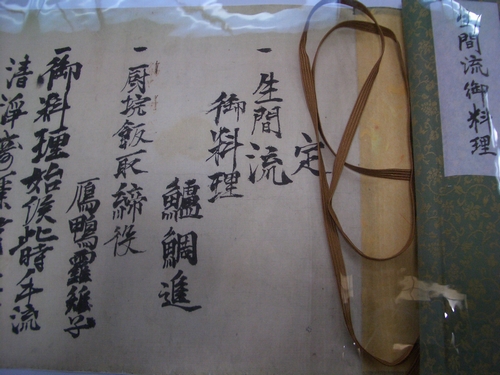 生間流御料理
定
一 生間流
御料理
鱸鯛進
一 厨垸飯取締役
鴈鴨靏雉子
一 御料理始候此時手流
清淨